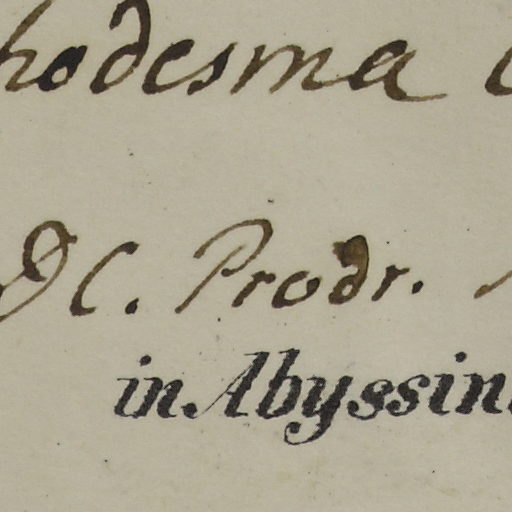 hodesma
DC. Prodr.
in Abyssin